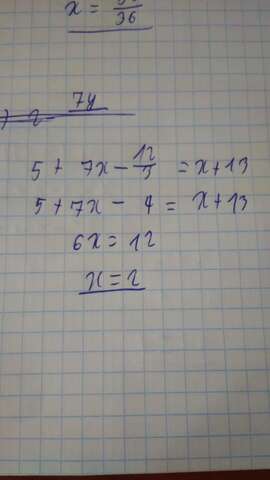 x = 36
7y
5 + 7x - 12/3 = x + 13
5 + 7x - 4 = x + 13
6x = 12
x = 2